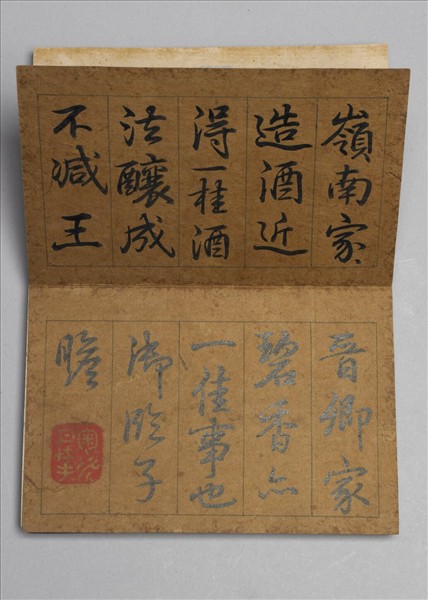 嶺南家、
造酒近
得一桂酒
法釀成
不減王
晉卿家
碧香亦
一佳事也
子
瞻